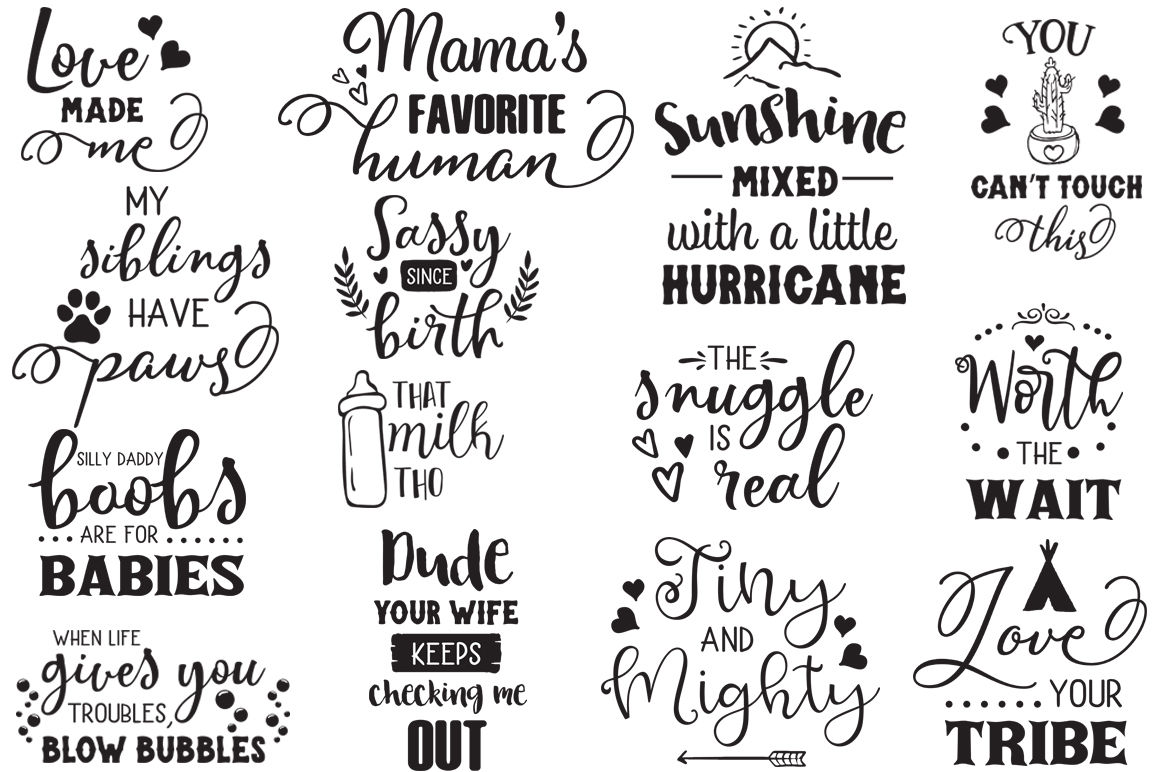 Love
MADE
me
Mama's
FAVORITE
human
Sunshine
MIXED
with a little
HURRICANE
YOU
CAN'T TOUCH
this
MY
siblings
HAVE
paws
Sassy
SINCE
birth
THAT
milk
THO
THE
snuggle
IS
real
Worth
THE
WAIT
SILLY DADDY
boobs
ARE FOR
BABIES
Dude
YOUR WIFE
KEEPS
checking me
OUT
Tiny
AND
Mighty
Love
YOUR
TRIBE
WHEN LIFE
gives you
TROUBLES,
BLOW BUBBLES